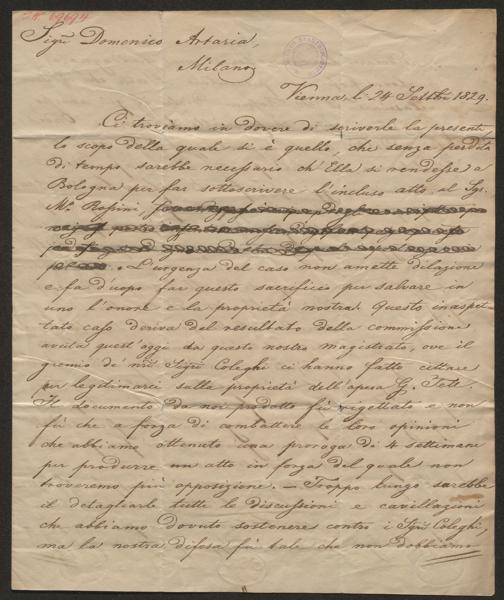 69694
Sigr Domenico Artaria,
Milano
Vienna li 24 Settbr 1829.
Ci troviamo in dovere di scriverle la presente
lo scopo della quale si è quello, che senza perdita
di tempo sarebbe necessario ch'Ella si rendesse a
Bologna per far sottoscrivere l'incluso atto al Sgr.
Mo Rossini
L'urgenza del caso non amette dilazione
e fa d'uopo far questo sacrificio per salvare in
uno l'onore e la proprietà nostra. Questo inaspet-
tato caso deriva dal resultato della commissione
avuta quest'oggi da questo nostro magistrato, ove il
gremio de' nri Sigri Coleghi ci hanno fatto cittare
per legitimarci sulle proprietà dell'opera G. Tell.
Il documento da noi prodotto fù rigettato e non
fù che a forza di combattere le loro opinioni
che abbiamo ottenuto una proroga di 4 settimane
per produrre un atto in forza del quale non
troveremo più opposizione. — Troppo lungo sarebbe
il detagliarle tutte le discussioni e cavillazioni
che abbiamo dovuto sostenere contro i Sigri Coleghi,
ma la nostra difesa fù tale che non dobbiamo